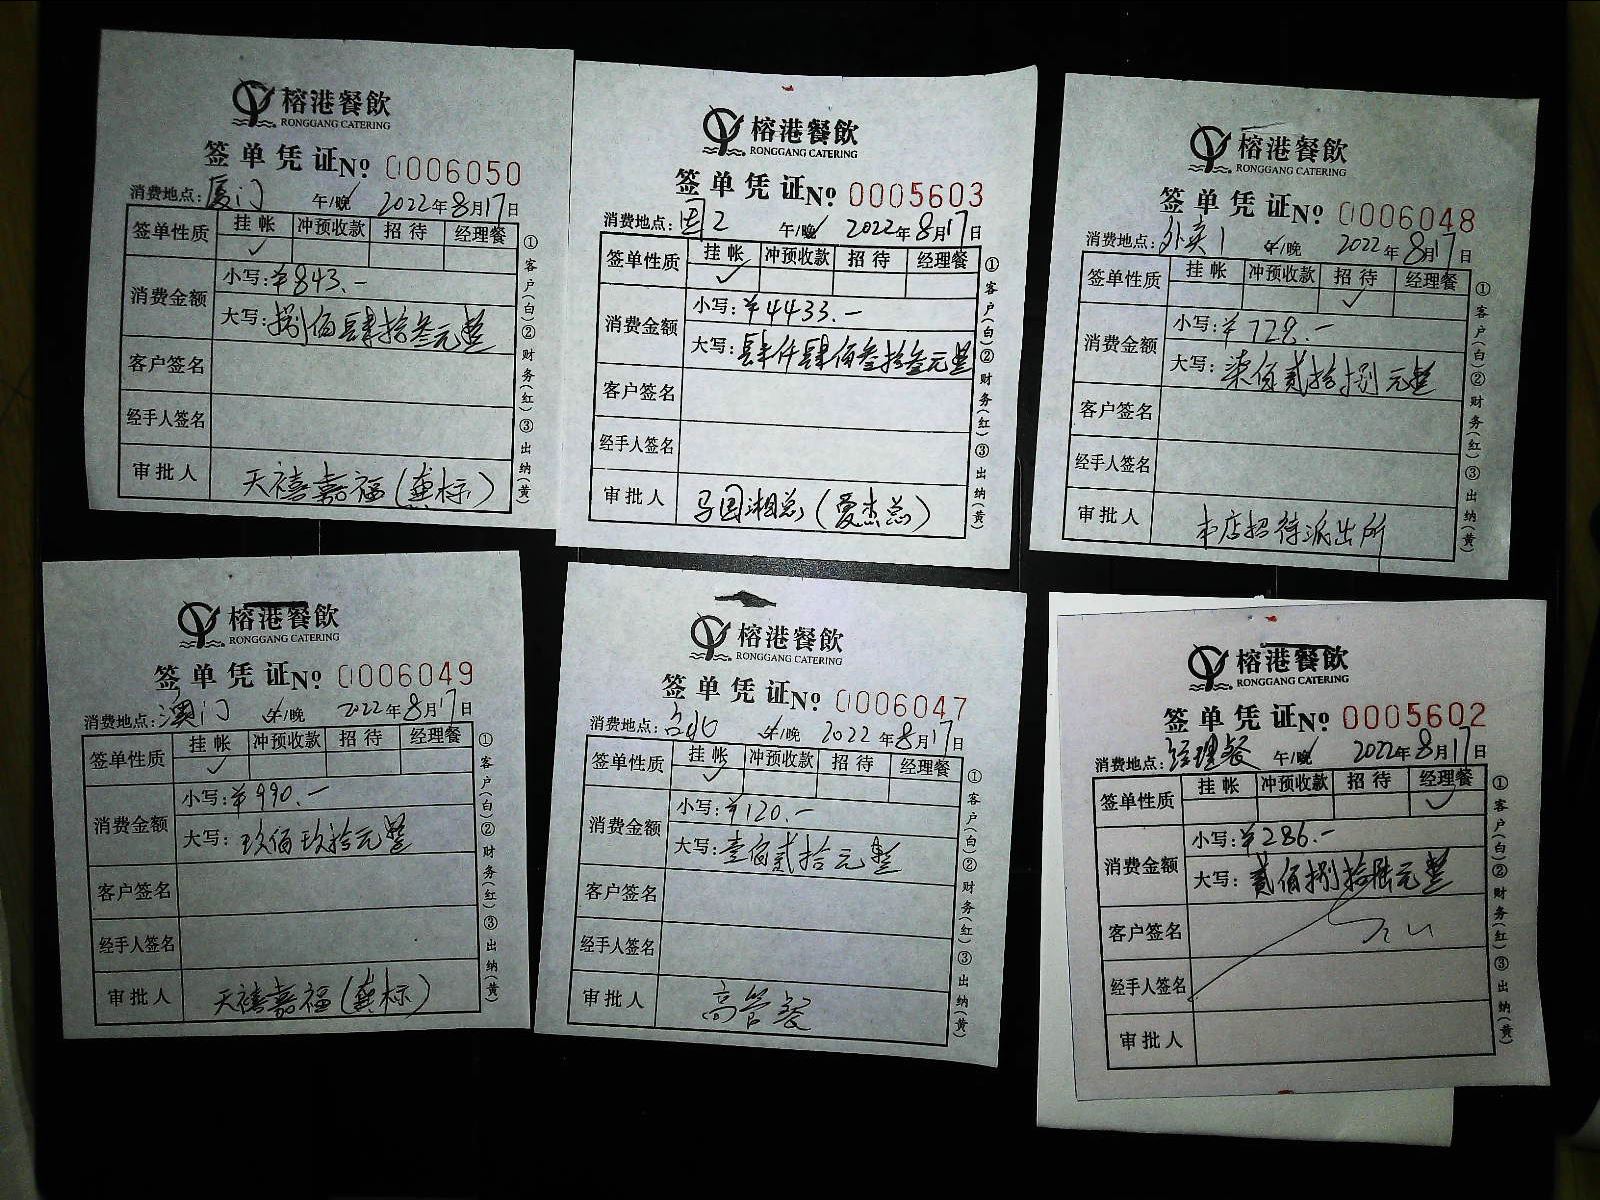 榕港餐飲
RONGGANG CATERING
签单凭证№ 0006050
消费地点:厦门 午/晚 2022年8月17日
签单性质 挂帐 冲预收款 招待 经理餐
✓
消费金额 小写:¥843.-
大写:捌佰肆拾叁元整
客户签名
经手人签名
审批人 天禧嘉福(龚标)
①客户(白)②财务(红)③出纳(黄)
榕港餐飲
RONGGANG CATERING
签单凭证№ 0005603
消费地点:国2 午/晚 2022年8月17日
签单性质 挂帐 冲预收款 招待 经理餐
✓
消费金额 小写:¥4433.-
大写:肆仟肆佰叁拾叁元整
客户签名
经手人签名
审批人 马国湘总(爱杰总)
①客户(白)②财务(红)③出纳(黄)
榕港餐飲
RONGGANG CATERING
签单凭证№ 0006048
消费地点:外卖1 午/晚 2022年8月17日
签单性质 挂帐 冲预收款 招待 经理餐
✓
消费金额 小写:¥728.-
大写:柒佰贰拾捌元整
客户签名
经手人签名
审批人 本店招待派出所
①客户(白)②财务(红)③出纳(黄)
榕港餐飲
RONGGANG CATERING
签单凭证№ 0006049
消费地点:澳门 午/晚 2022年8月17日
签单性质 挂帐 冲预收款 招待 经理餐
✓
消费金额 小写:¥990.-
大写:玖佰玖拾元整
客户签名
经手人签名
审批人 天禧嘉福(龚标)
①客户(白)②财务(红)③出纳(黄)
榕港餐飲
RONGGANG CATERING
签单凭证№ 0006047
消费地点:台北 午/晚 2022年8月17日
签单性质 挂帐 冲预收款 招待 经理餐
✓
消费金额 小写:¥120.-
大写:壹佰贰拾元整
客户签名
经手人签名
审批人 高管餐
①客户(白)②财务(红)③出纳(黄)
榕港餐飲
RONGGANG CATERING
签单凭证№ 0005602
消费地点:经理餐 午/晚 2022年8月17日
签单性质 挂帐 冲预收款 招待 经理餐
✓
消费金额 小写:¥286.-
大写:贰佰捌拾陆元整
客户签名
经手人签名
审批人
①客户(白)②财务(红)③出纳(黄)